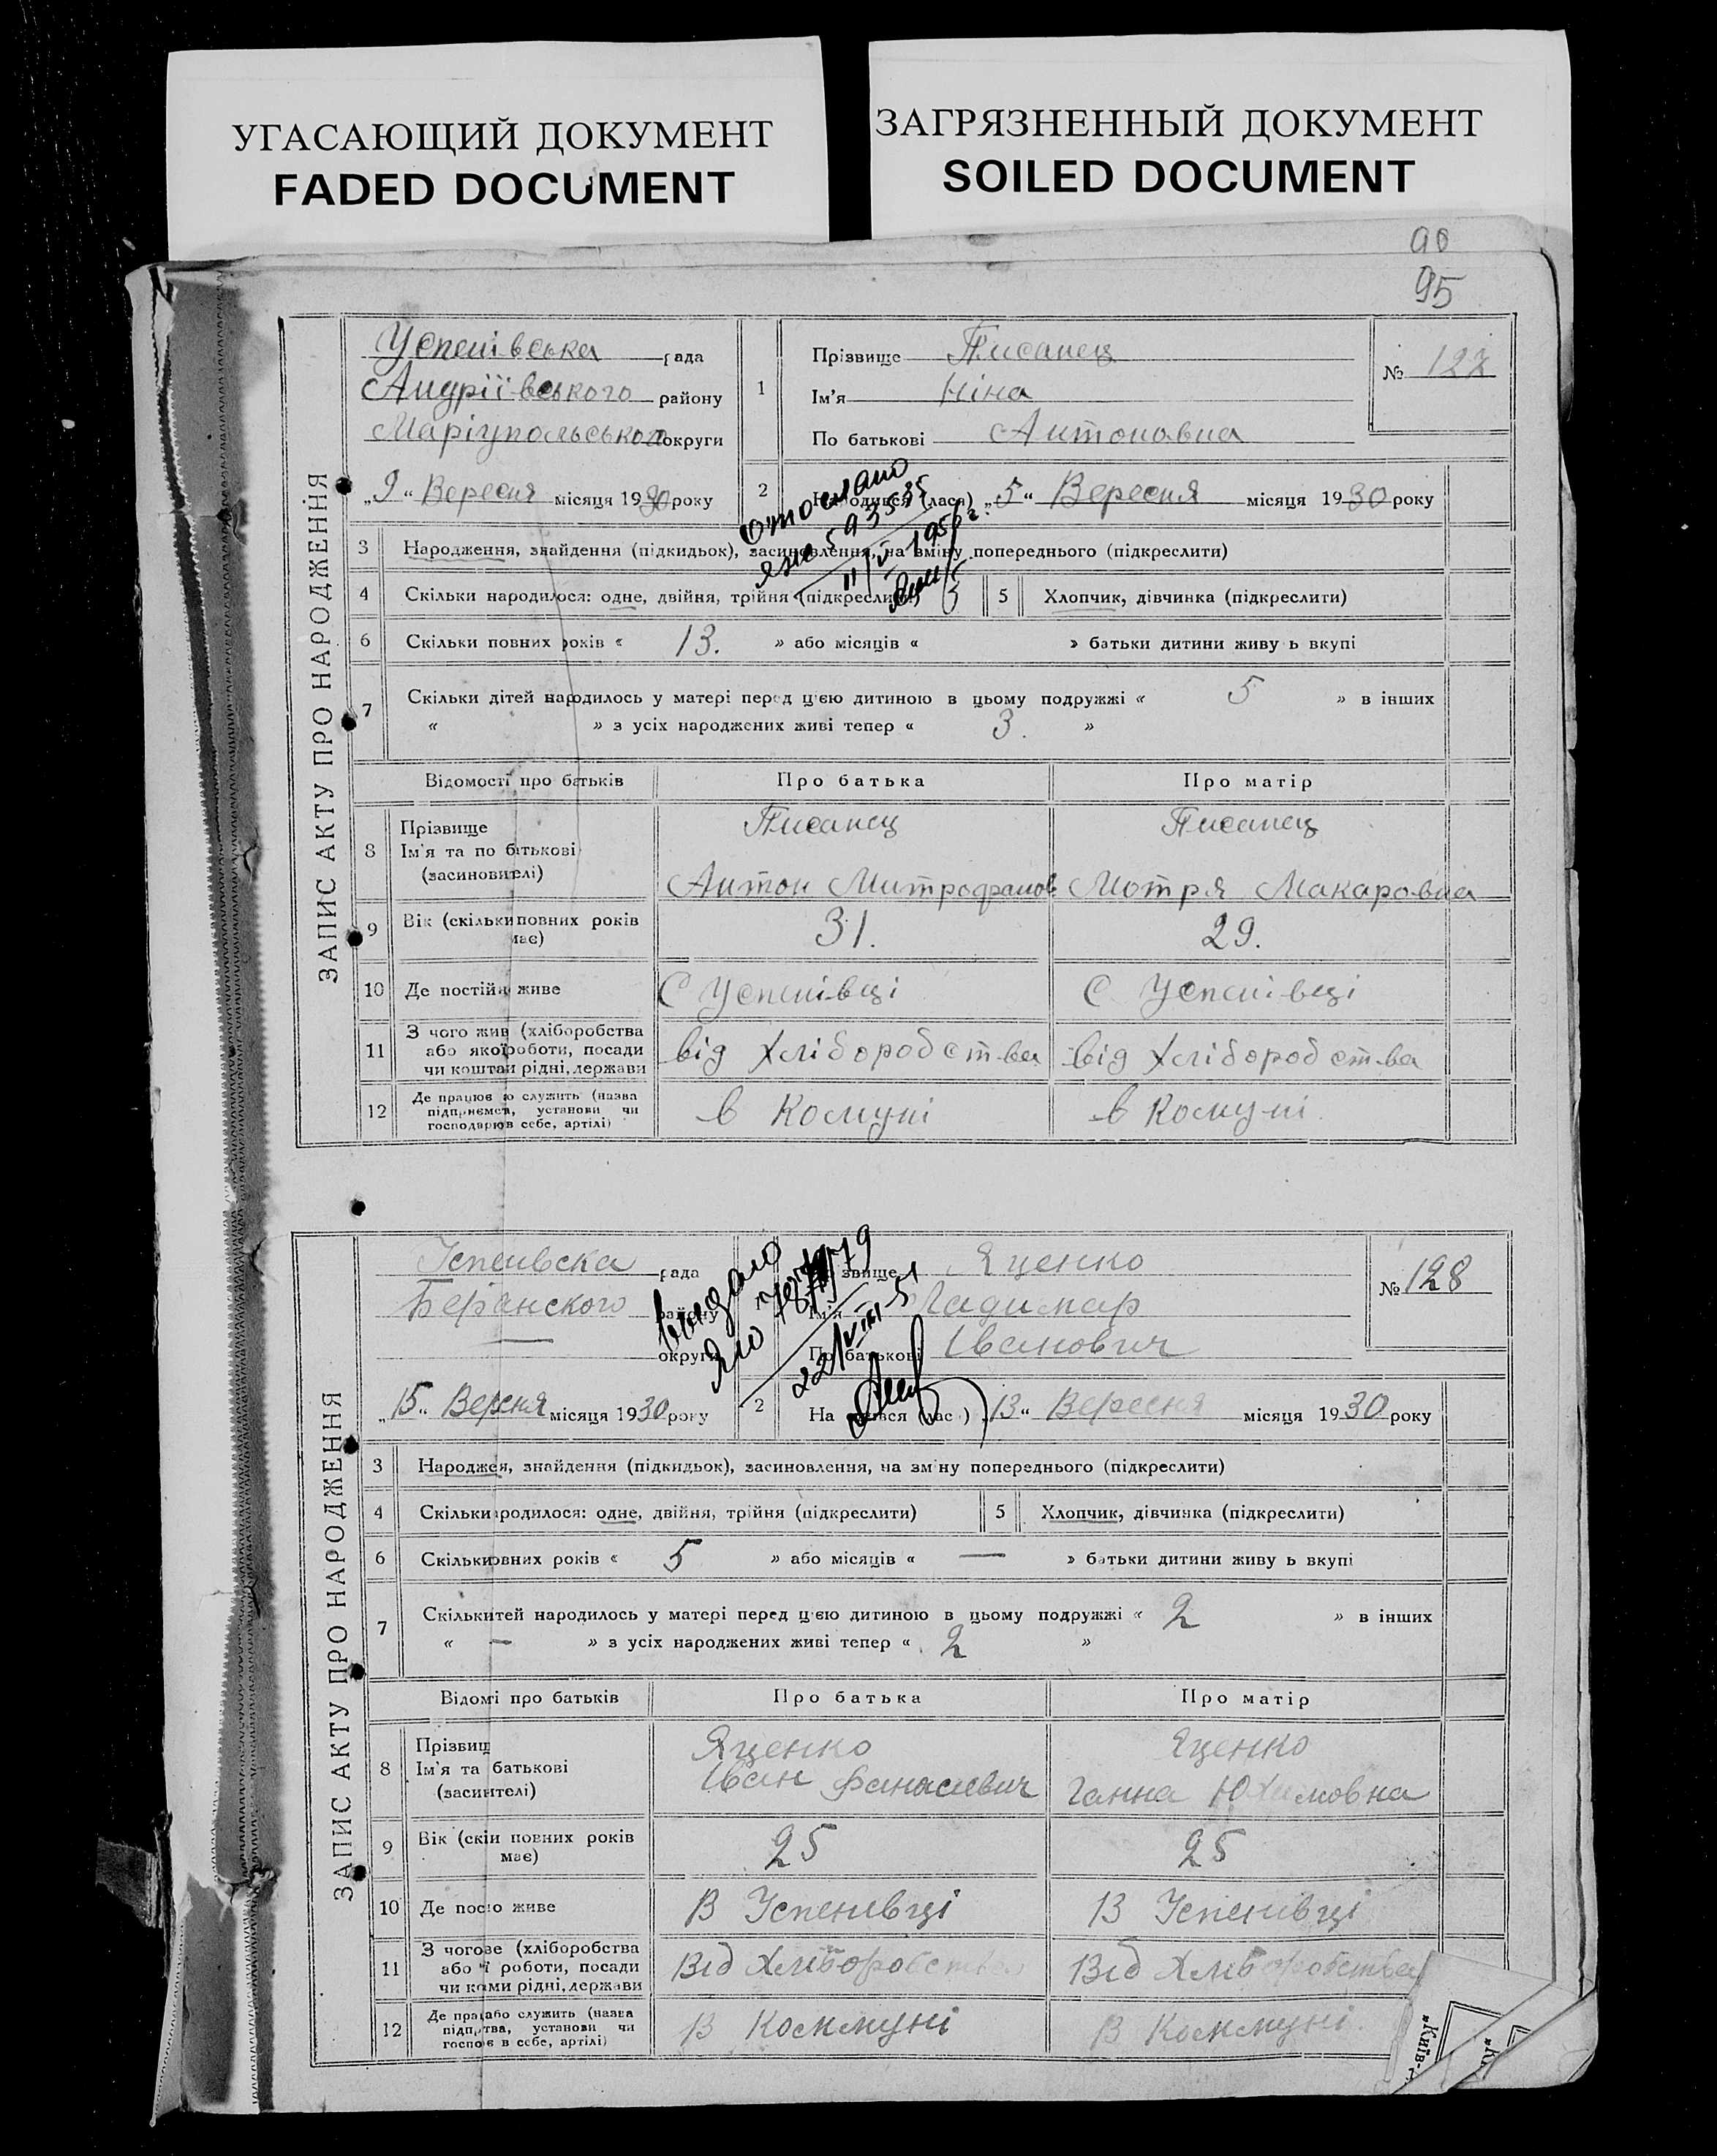 УГАСАЮЩИЙ ДОКУМЕНТ
FADED DOCUMENT
ЗАГРЯЗНЕННЫЙ ДОКУМЕНТ
SOILED DOCUMENT
90
95
ЗАПИС АКТУ ПРО НАРОДЖЕННЯ
Успенівська рада
Андріївського району
Маріупольського округи
„9“ Вересня місяця 1930 року
1
Прізвище Писанец
Ім'я Ніна
По батькові Антоновна
№ 127
2 Народився (лася) „5“ Вересня місяця 1930 року
3 Народження, знайдення (підкидьок), засиновлення, на зміну попереднього (підкреслити)
4 Скільки народилося: одне, двійня, трійня (підкреслити) 5 Хлопчик, дівчинка (підкреслити)
6 Скільки повних років « 13. » або місяців « » батьки дитини живу ь вкупі
7 Скільки дітей народилось у матері перед цією дитиною в цьому подружжі « 5 » в інших
« » з усіх народжених живі тепер « 3. »
Відомості про батьків Про батька Про матір
8 Прізвище
Ім'я та по бітькові
(засиновителі)
Писанец
Антон Митрофанов
Писанец
Мотря Макаровна
9 Вік (скільки повних років має) 31. 29.
10 Де постійн живе С Успенівці С Успенівці
11 З чого жив (хліборобства
або якої роботи, посади
чи коштаи рідні, держави
від Хліборобства від Хліборобства
12 Де працює
служить (назва
установи чи
себе, артілі)
в Комуні в Комуні.
1956 г.
ЗАПИС АКТУ ПРО НАРОДЖЕННЯ
Успенівска рада
Берянского району
— округи
„15“ Версня місяця 1930 року
звище Яценко
Ім'я Ладимар
По батькові Іванович
№ 128
видано
22/VIII-51
2 „13“ Вересня місяця 1930 року
3 Народжея, знайдення (підкидьок), засиновлення, на зміну попереднього (підкреслити)
4 Скільки родилося: одне, двійня, трійня (підкреслити) 5 Хлопчик, дівчинка (підкреслити)
6 Скільки овних років « 5 » або місяців « — » батьки дитини живу ь вкупі
7 Скільки тей народилось у матері перед цією дитиною в цьому подружжі « 2 » в інших
« — » з усіх народжених живі тепер « 2 »
Відомі про батьків Про батька Про матір
8 Прізвищ
Ім'я та батькові
Яценко
Іван Фанасиевич
Яценко
Ганна Юхимовна
9 Вік (скіи повних років
має)
25 25
10 Де посіо живе В Успенівці В Успенівці
11 З чого ве (хліборобства
або ї роботи, посади
чи коми рідні, держави
Від Хліборобства Від Хліборобства
12 або служить (назва
установи чи
в себе, артілі)
В Коммуні В Коммуні.
„Київ-